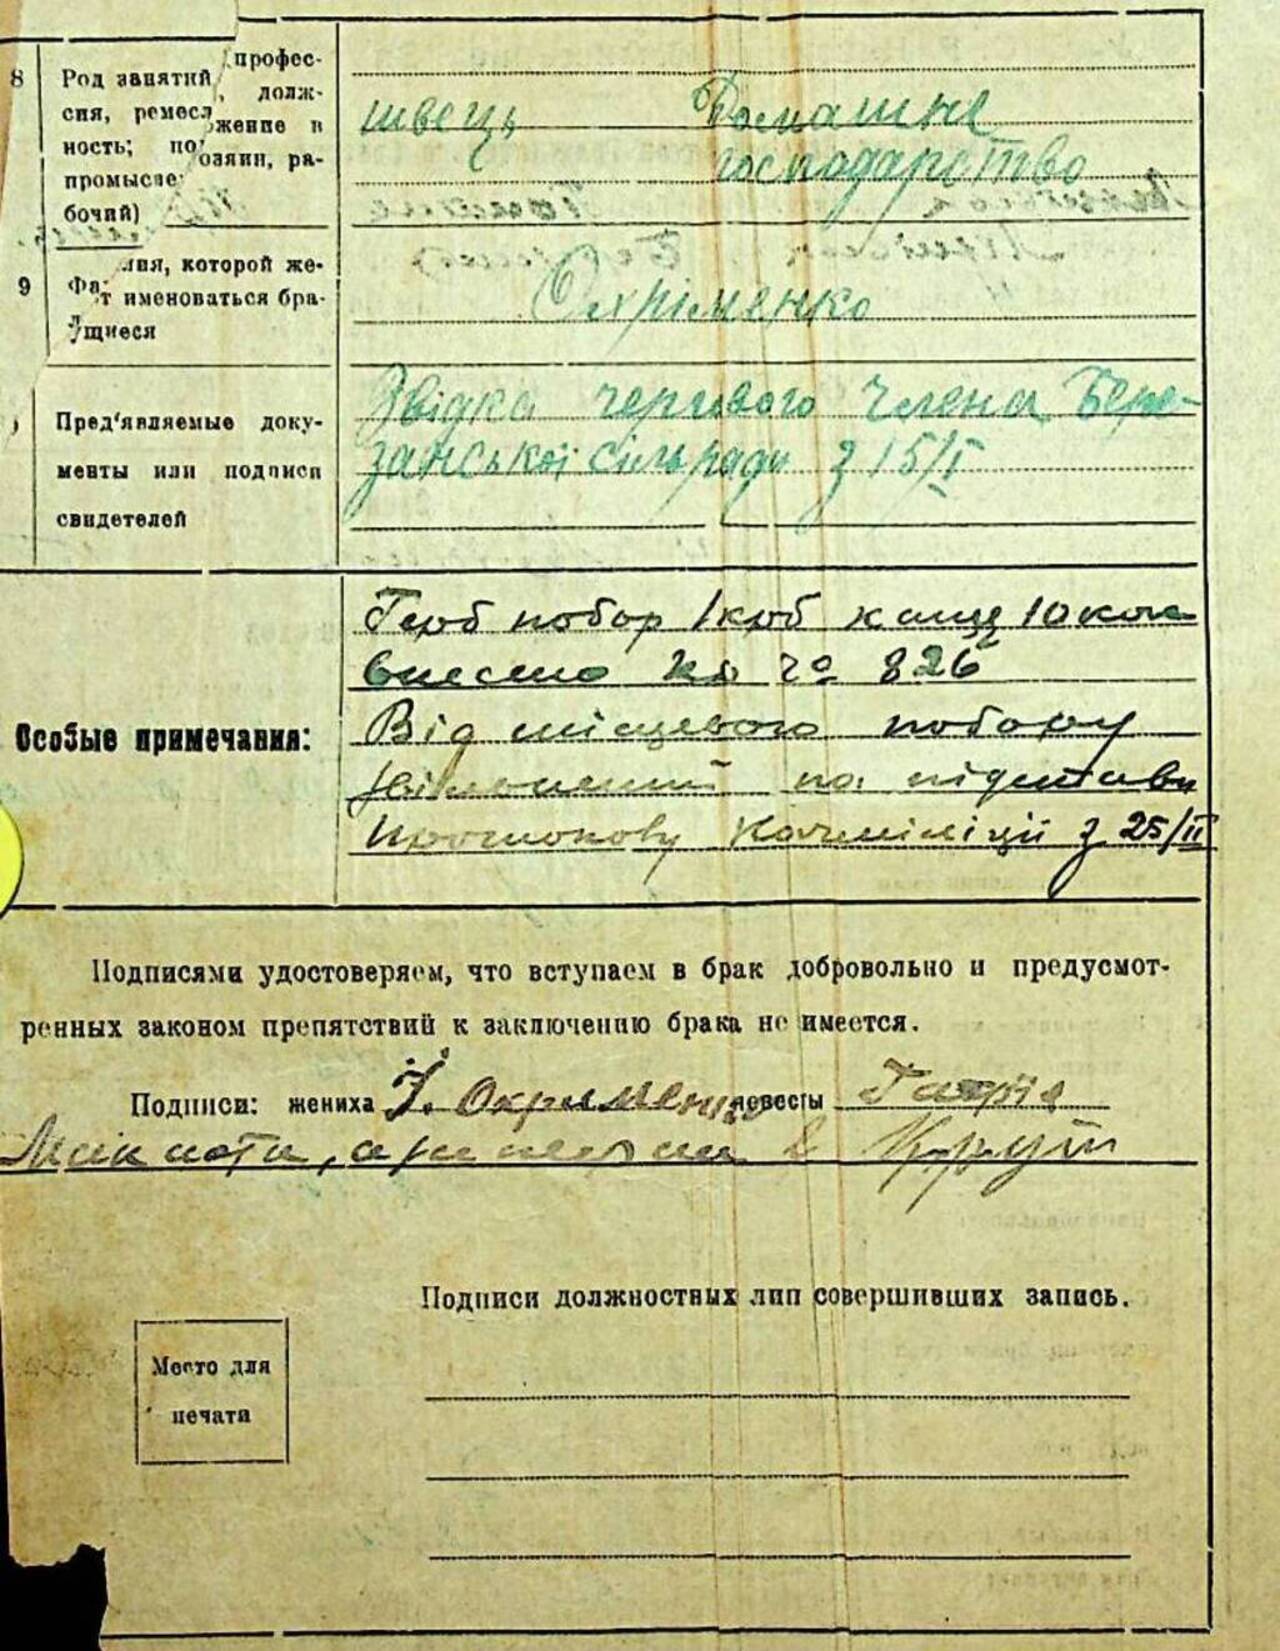 8 Род занятий профес-
сия, ремесл , долж-
ность; по жение в
промысле озяин, ра-
бочий)
швець Домашне
господарство
9 Фа ия, которой же-
т именоваться бра-
щиеся
Охріменко
Пред'являемые доку-
менты или подписи
свидетелей
Звідка чергового члена Бере-
занської сільради з 15/I
Особые примечания:
Герб побор 1 крб канц 10 коп
внесено кв № 826
Від місцевого побору
звільнений на підставі
протоколу з 25/II
Подписями удостоверяем, что вступаем в брак добровольно и предусмот-
ренных законом препятствий к заключению брака не имеется.
Подписи: жениха Охрименко невесты
Подписи должностных лиц совершивших запись.
Место для
печати